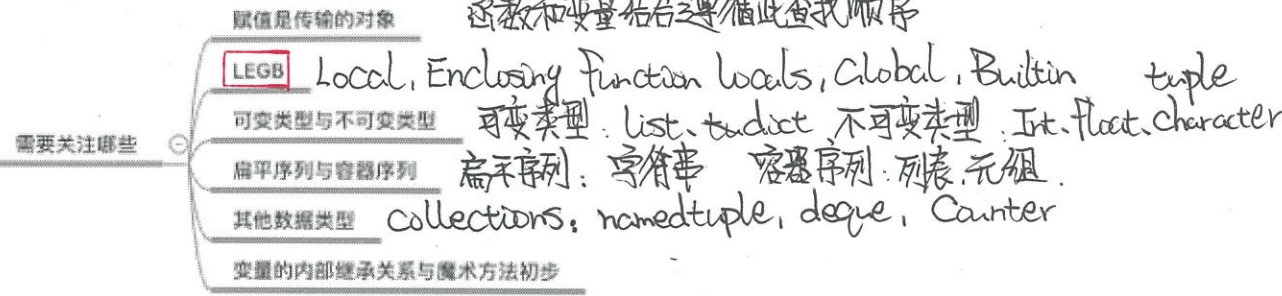 赋值是传输的对象 函数和变量结合之遵循此查找顺序
LEGB Local, Enclosing function locals, Global, Builtin tuple
可变类型与不可变类型 可变类型: list、dict 不可变类型: Int、float、character
需要关注哪些
扁平序列与容器序列 扁平序列: 字符串 容器序列: 列表、元组.
其他数据类型 collections: namedtuple, deque, Counter
变量的内部继承关系与魔术方法初步